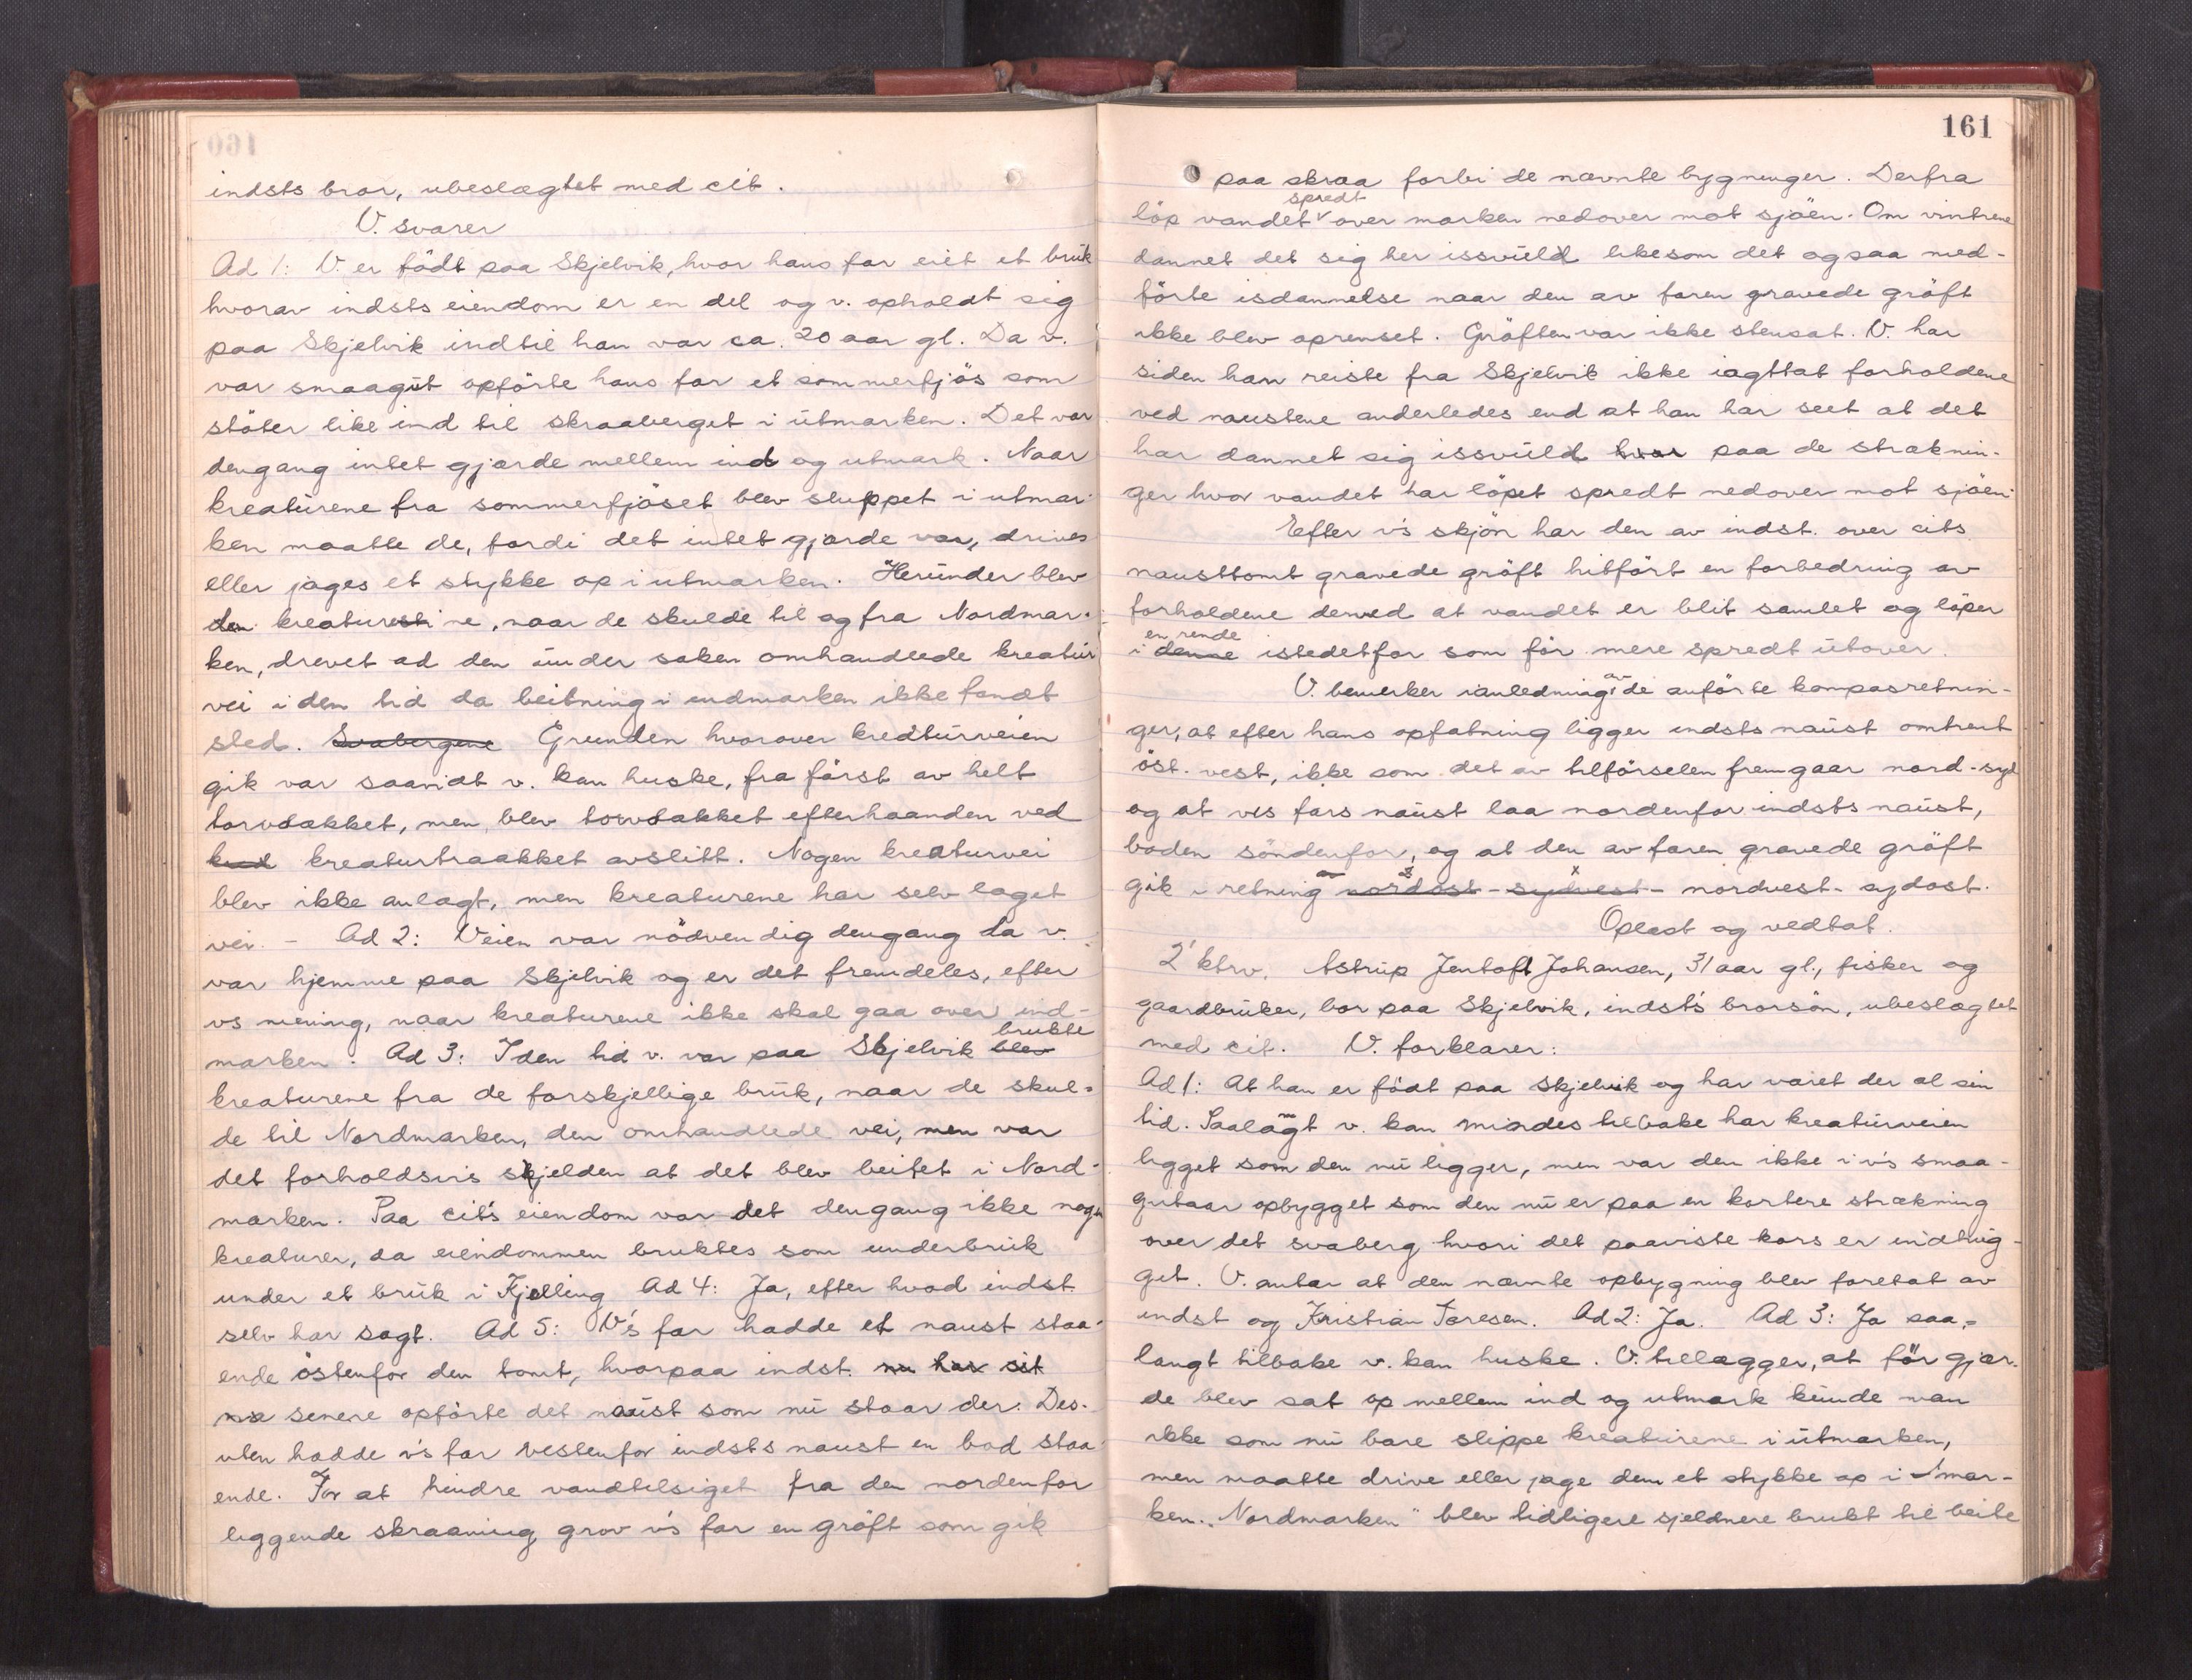 indsts bror, ubeslægtet med cit.
V. svarer
Ad 1: V. er födt paa Skjelvik, hvor hans far eiet et bruk
hvorav indsts eiendom er en del og v. opholdt sig
paa Skjelvik indtil han var ca. 20 aar gl. Da v.
var smaagut opförte hans far et sommerfjös som
stöter like ind til skraaberget i utmarken. Det var
dengang intet gjærde mellem ind og utmark. Naar
kreaturene fra sommerfjöset blev sluppet i utmar-
ken maatte de, fordi det intet gjærde var, drives
eller jages et stykke op i utmarken. Herunder blev
den kreaturene, naar de skulde til og fra Nordmar-
ken, drevet ad den under saken omhandlede kreatur
vei i den tid da beitning i indmarken ikke fandt
sted. Svabergene Grunden hvorover kreaturveien
gik var saavidt v. kan huske, fra först av helt
torvdækket, men blev torvdækket efterhaanden ved
kreaturtraakket avslitt. Nogen kreaturvei
blev ikke anlagt, men kreaturene har selv laget
vei. - Ad 2: Veien var nödvendig dengang da v.
var hjemme paa Skjelvik og er det fremdeles, efter
vs mening, naar kreaturene ikke skal gaa over ind-
marken. Ad 3: I den tid v. var paa Skjelvik blev brukte
kreaturene fra de forskjellige bruk, naar de skul-
de til Nordmarken, den omhandlede vei, men var
det forholdsvis skjelden at det blev beitet i Nord-
marken. Paa cit's eiendom var det dengang ikke nogen
kreaturer, da eiendommen bruktes som underbruk
under et bruk i Fjelling Ad 4: Ja, efter hvad indst.
selv har sagt. Ad 5: V's far hadde et naust staa-
ende östenfor den tomt, hvorpaa indst. nu har sit
senere opförte det naust som nu staar der. Des-
uten hadde v's far vestenfor indsts naust en bod staa-
ende. For at hindre vandtilsiget fra den nordenfor
liggende skraaning grov v's far en gröft som gik
161
paa skraa forbi de nævnte bygninger. Derfra
löp vandet spredt over marken nedover mot sjöen. Om vintrene
dannet det sig her issvuld likesom det ogsaa med-
förte isdannelse naar den av faren gravede gröft
ikke blev oprenset. Gröften var ikke stensat. V. har
siden han reiste fra Skjelvik ikke iagttat forholdene
ved naustene anderledes end at han har seet at det
har dannet sig issvuld hvor paa de stræknin-
ger hvor vandet har löpet spredt nedover mot sjöen.
Efter v's skjön har den av indst. over cits
nausttomt gravede gröft hitfört en forbedring av
forholdene derved at vandet er blit samlet og löper
i denne en rende istedetfor som för mere spredt utover.
V. bemerker i anledning av de anförte kompasretnin-
ger, at efter hans opfatning ligger indsts naust omtrent
öst-vest, ikke som det av tilförselen fremgaar nord-syd
og at vs fars naust laa nordenfor indsts naust,
boden söndenfor, og at den av faren gravede gröft
gik i retning av nordost - sydvest - nordvest - sydost.
Oplæst og vedtat.
2' ktrv. Astrup Jentoft Johansen, 31 aar gl., fisker og
gaardbruker, bor paa Skjelvik, indst's brorsön, ubeslægtet
med cit. V. forklarer:
Ad 1: At han er födt paa Skjelvik og har været der al sin
tid. Saalangt v. kan mindes tilbake har kreaturveien
ligget som den nu ligger, men var den ikke i v's smaa-
gutaar opbygget som den nu er paa en kortere strækning
over det svaberg hvori det paaviste kors er indhug-
get. V. antar at den nævnte opbygning blev foretat av
indst og Kristian Taresen. Ad 2: Ja. Ad 3: Ja saa-
langt tilbake v. kan huske. V. tillægger, at för gjær-
de blev sat op mellem ind og utmark kunde man
ikke som nu bare slippe kreaturene i utmarken,
men maatte drive eller jage dem et stykke op i mar-
ken. "Nordmarken" blev tidligere sjeldnere brukt til beite